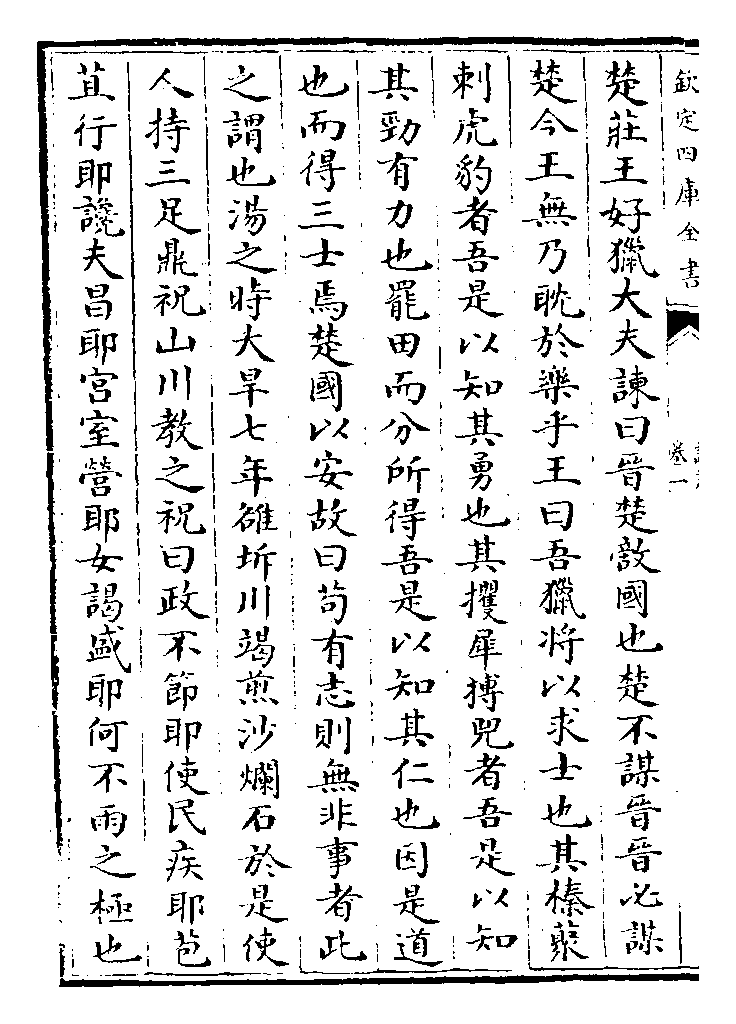 欽定四庫全書
卷一
楚莊王好獵大夫諫曰晉楚敵國也楚不謀晉晉必謀
楚今王無乃耽於樂乎王曰吾獵將以求士也其榛藂
刺虎豹者吾是以知其勇也其攫犀搏兕者吾是以知
其勁有力也罷田而分所得吾是以知其仁也因是道
也而得三士焉楚國以安故曰苟有志則無非事者此
之謂也湯之時大旱七年雒坼川竭煎沙爛石於是使
人持三足鼎祝山川教之祝曰政不節耶使民疾耶苞
苴行耶讒夫昌耶宮室營耶女謁盛耶何不雨之極也